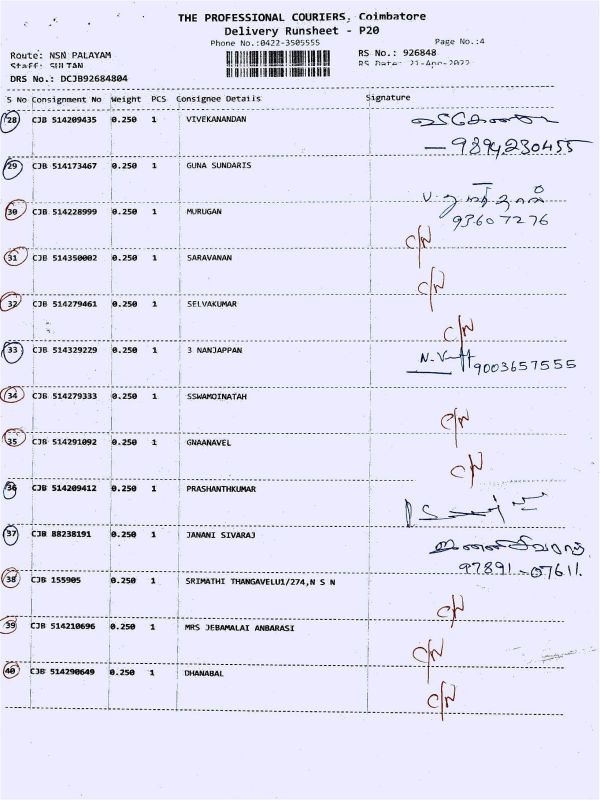 THE PROFESSIONAL COURIERS, Coimbatore
Delivery Runsheet - P20
Phone No.:0422-3505555
Page No.:4
Route: NSN PALAYAM
RS No.: 926848
Staff: SULTAN
RS Date: 21-Apr-2022
DRS No.: DCJB92684804
S No Consignment No Weight PCS Consignee Details Signature
28 CJB 514209435 0.250 1 VIVEKANANDAN
- 9894230455
29 CJB 514173467 0.250 1 GUNA SUNDARIS
93607276
30 CJB 514228999 0.250 1 MURUGAN C/N
31 CJB 514350002 0.250 1 SARAVANAN C/N
32 CJB 514279461 0.250 1 SELVAKUMAR C/N
33 CJB 514329229 0.250 1 3 NANJAPPAN 9003657555
34 CJB 514279333 0.250 1 SSWAMOINATAH C/N
35 CJB 514291092 0.250 1 GNAANAVEL C/N
36 CJB 514209412 0.250 1 PRASHANTHKUMAR
37 CJB 88238191 0.250 1 JANANI SIVARAJ
97891-07611
38 CJB 155905 0.250 1 SRIMATHI THANGAVELU1/274,N S N C/N
39 CJB 514210696 0.250 1 MRS JEBAMALAI ANBARASI C/N
40 CJB 514290649 0.250 1 DHANABAL C/N